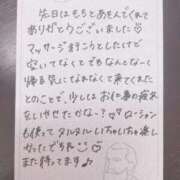 先日はもちとあそんでくれて
ありがとうございました♡
マッサージ行こうとしたけど
空いてなくてでもなんとなく
帰る気になれなくて来てくれたと
のことで、少しはお仕事の疲れ
をいやせたかな…？♡
ローション
も使ってヌルヌルいちゃいちゃ楽し
かったでちね♡
また待ってます♪